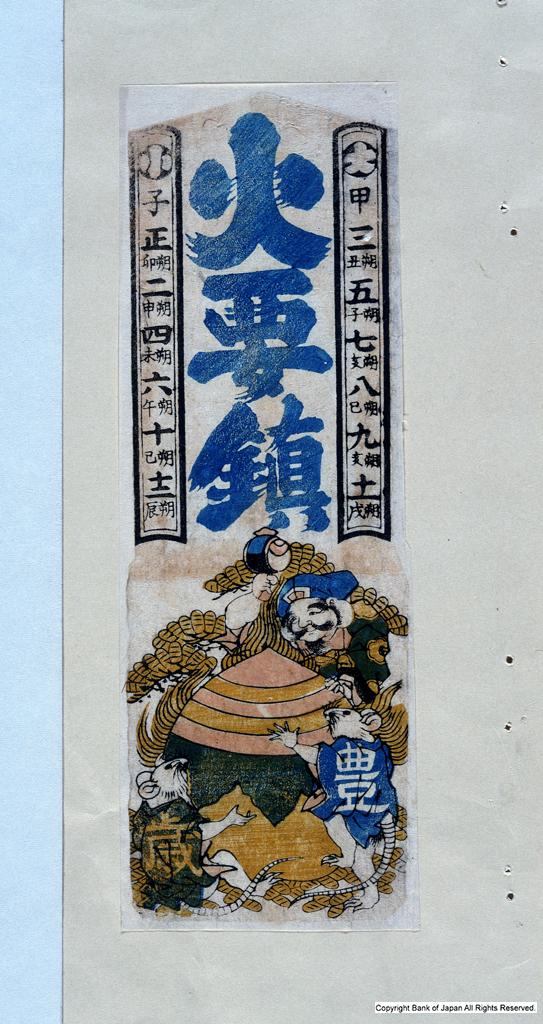 大
甲
三 丑朔
五 子朔
七 亥朔
八 巳朔
九 亥朔
十一 戌朔
火要鎮
小
子
正 卯朔
二 申朔
四 未朔
六 午朔
十 巳朔
十二 辰朔
豊
歳
Copyright Bank of Japan All Rights Reserved.